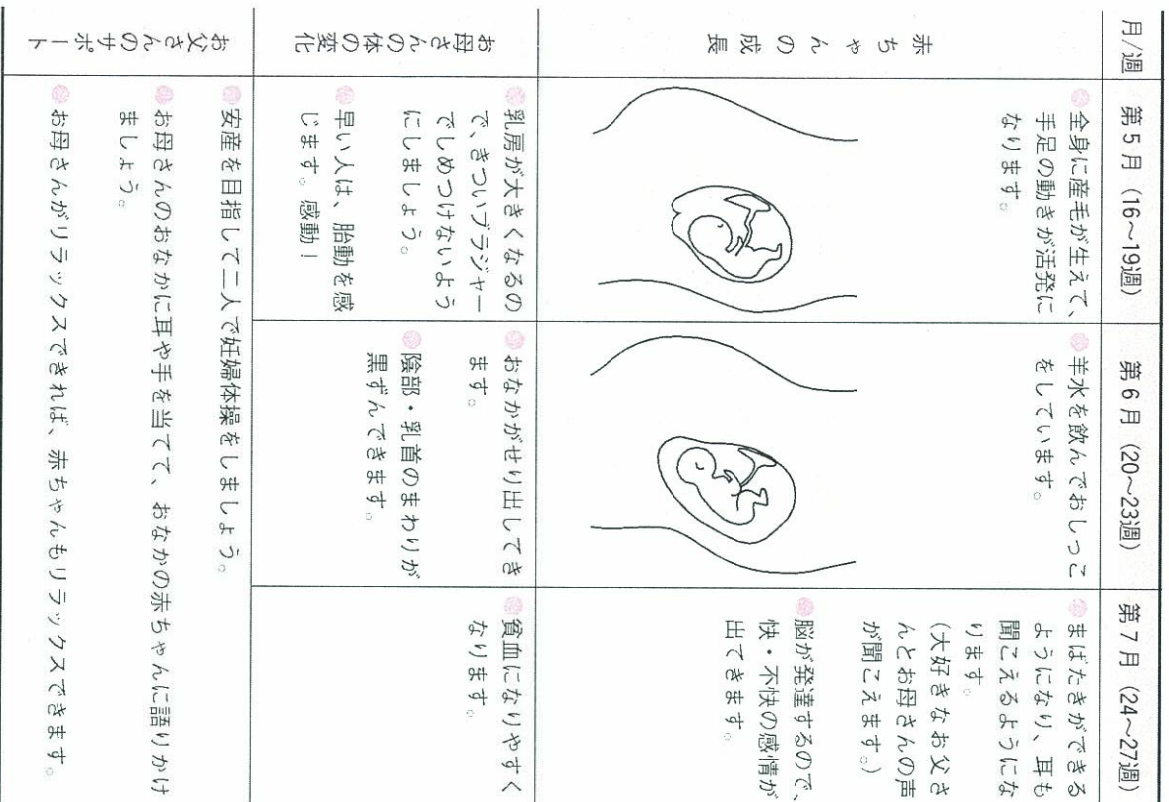 月/週
第5月（16～19週）
第6月（20～23週）
第7月（24～27週）
赤ちゃんの成長
全身に産毛が生えて、
手足の動きが活発に
なります。
羊水を飲んでおしっこ
をしています。
まばたきができる
ようになり、耳も
聞こえるようにな
ります。
（大好きなお父さ
んとお母さんの声
が聞こえます。）
脳が発達するので、
快・不快の感情が
出てきます。
お母さんの体の変化
乳房が大きくなるの
で、きついブラジャー
でしめつけないよう
にしましょう。
早い人は、胎動を感
じます。感動！
おなかがせり出してき
ます。
陰部・乳首のまわりが
黒ずんできます。
貧血になりやすく
なります。
お父さんのサポート
安産を目指して二人で妊婦体操をしましょう。
お母さんのおなかに耳や手を当てて、おなかの赤ちゃんに語りかけ
ましょう。
お母さんがリラックスできれば、赤ちゃんもリラックスできます。